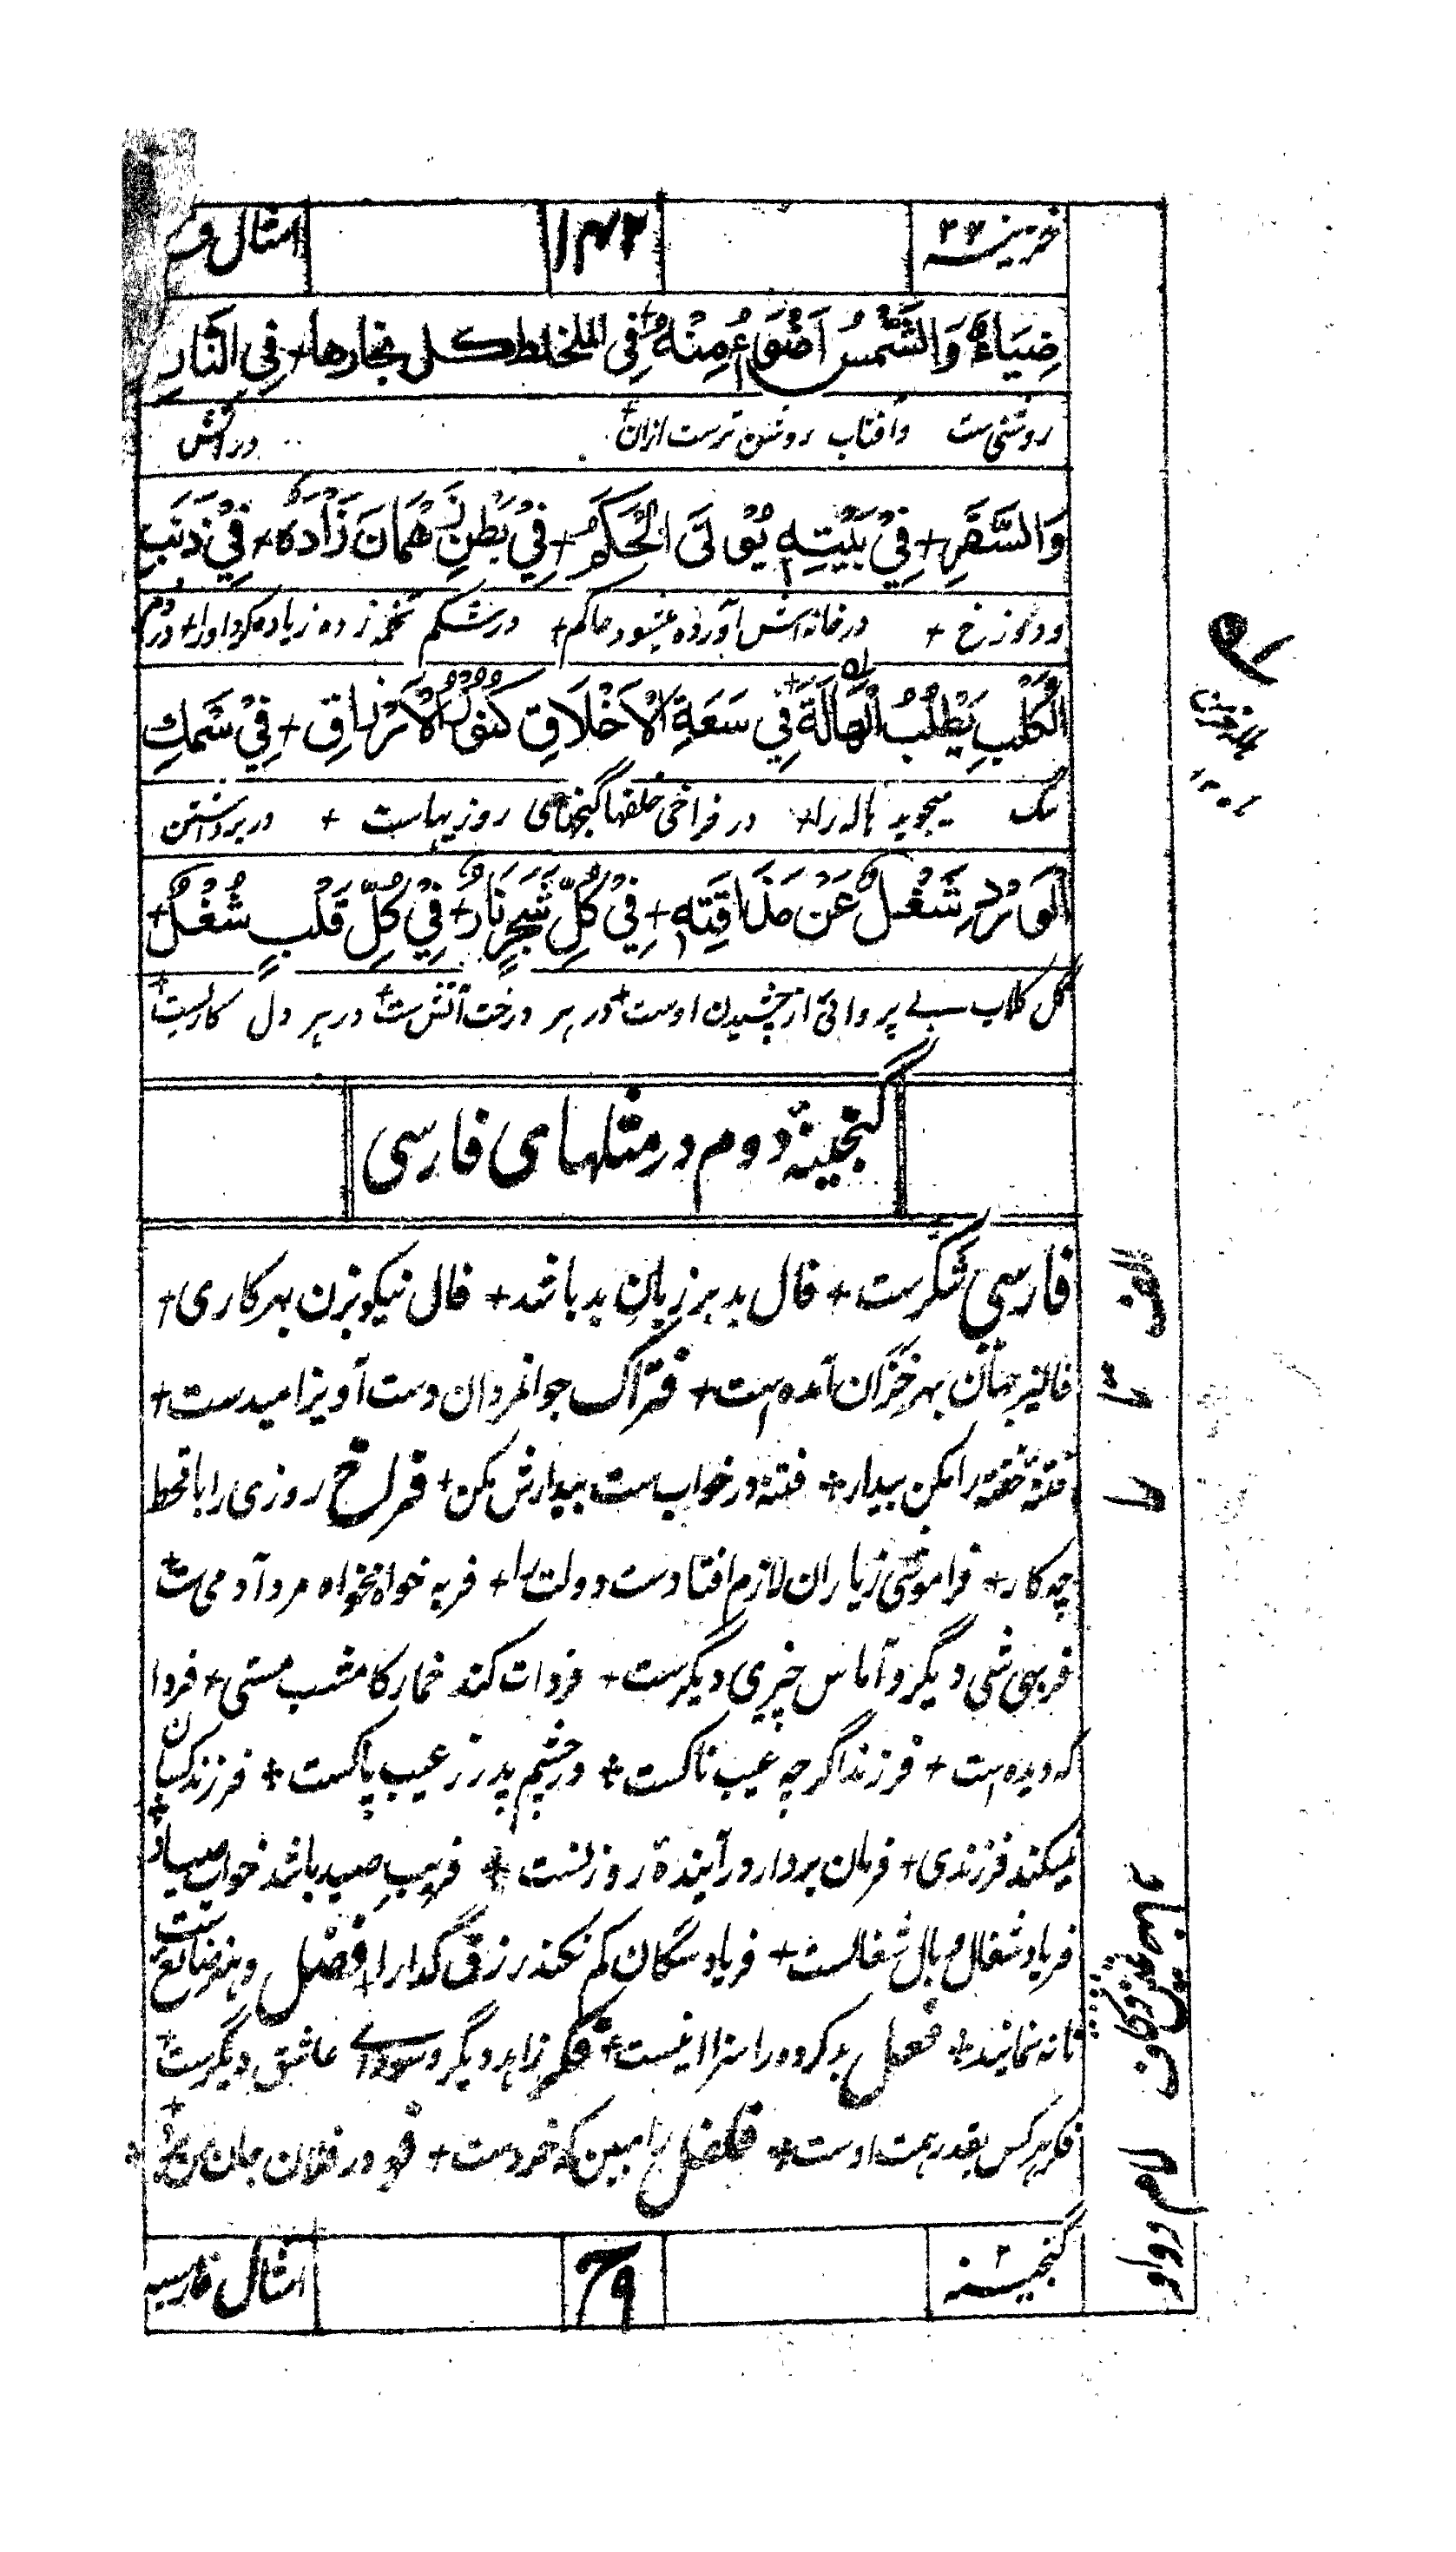 خزینه ۲۷
۱۴۲
امثال و
ضِيَاءٌ وَالشَّمْسُ اَضْوَءُ مِنْهُ + فِي كل نجارها + فِي النَّارِ
روشنی ست وآفتاب روشن ترست ازان + در آتش
وَالسَّقَرِ + فِيْ بَيْتِهٖ يُوْتَى الْحَكَمُ + فِيْ بَطْنِ زَادَهُ + فِيْ ذَنَبِ
ودوزخ + در خانه اش آورده میشود حاکم + در شکم زیاده کرد اورا + در دم
الْكَلْبِ يَطْلُبُ الْهَالَةَ + فِي سَعَةِ الْاَخْلَاقِ كُنُوْزُ الْاَرْزَاقِ + فِيْ شَمِّكَ
سگ میجوید هاله را + در فراخی خلقها گنجهای روزیهاست +
الْوَرْدَ شُغْلٌ عَنْ مَذَاقَتِهٖ + فِيْ كُلِّ شَجَرٍ نَارٌ + فِيْ كُلِّ قَلْبٍ شُغْلٌ +
گل گلاب بے پروائی از چشیدن اوست + در هر درخت آتش ست + در هر دل کاریست +
گنجینهٔ دوم در مثلهای فارسی
فارسی شکرست + فال بد بر زبان بد باشد + فال نیکو بزن بهر کاری +
فالیز جهان بهر خزان آمده است + فتراک جوانمردان دست آویز امیدست +
فتنهٔ خفته را مکن بیدار + فتنه در خواب ست بیدارش مکن + فراخ روزی را با قحط
چه کار + فراموشی زیاران لازم افتادست دولت را + فربه خواه نخواه مرد آدمی ست +
فربهی شی دیگر و آماس چیزی دیگرست + فردات کند خمار کامشب مستی + فردا
که دیده است + فرزند اگر چه عیب ناکست + در چشم پدر ز عیب پاکست + فرزند کسان
نمیکند فرزندی + فرمان بردار در آیندهٔ روزنست + فریب صید باشد خواب صیاد +
فریاد شغال وبال شغالست + فریاد سگان کم نکند رزق گدارا + فضل و هنر ضائع ست
تا نه نمایند + فعل بد کرده را سزا اینست + فکر زاهد دیگر و سودای عاشق دیگرست +
فکر هر کس بقدر همت اوست + فلفل را مبین که خردست +
الف
تا
را
لام و واو
گنجینه ۲
امثال فارسیه